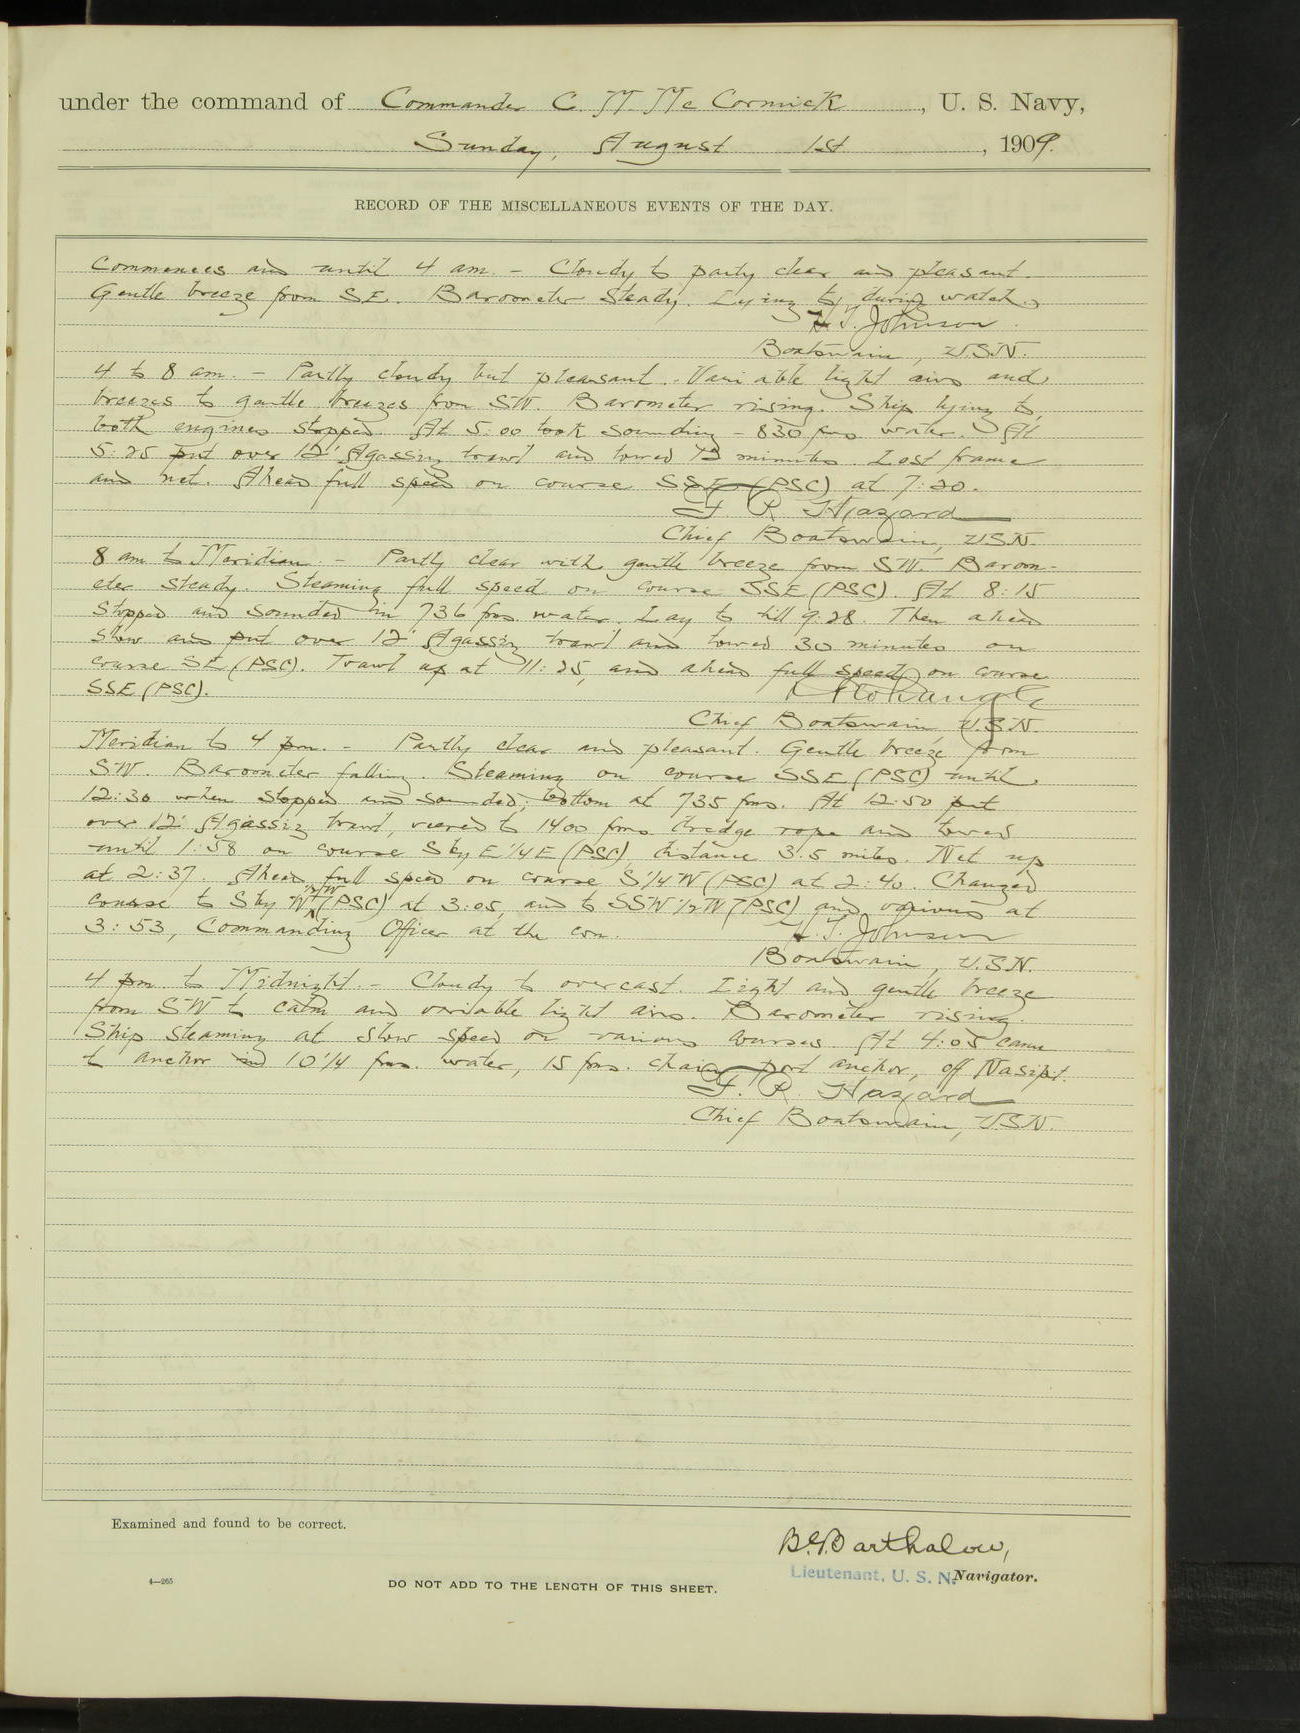 under the command of Commander C. M. McCormick, U. S. Navy,
Sunday, August 1st, 1909.
RECORD OF THE MISCELLANEOUS EVENTS OF THE DAY.
Commences and until 4 am. - Cloudy to party clear and pleasant.
Gentle breeze from SE. Barometer steady. Lying to during watch.
H. T. Johnson
Boatswain, U.S.N.
4 to 8 am. - Partly cloudy but pleasant. Variable light airs and
breezes to gentle breezes from SW. Barometer rising. Ship lying to,
both engines stopped. At 5:00 took sounding - 830 fms water. At
5:25 put over 12' Agassiz trawl and towed minutes. Lost frame
and net. Ahead full speed on course SSE (PSC) at 7:20.
F. R. Hazard
Chief Boatswain, U.S.N.
8 am to Meridian. - Partly clear with gentle breeze from SW. Barom-
eter steady. Steaming full speed on course SSE (PSC). At 8:15
stopped and sounded in 736 fms. water. Lay to till 9:28. Then ahead
slow and put over 12' Agassiz trawl and towed 30 minutes on
course SE (PSC). Trawl up at 11:25, and ahead full speed on course
SSE (PSC).
Chief Boatswain U.S.N.
Meridian to 4 pm. - Partly clear and pleasant. Gentle breeze from
SW. Barometer falling. Steaming on course SSE (PSC) until
12:30 when stopped and sounded; bottom at 735 fms. At 12:50 put
over 12' Agassiz trawl, veered to 1400 fms. dredge rope and towed
until 1:58 on course S by E 1/4 E (PSC), distance 3.5 miles. Net up
at 2:37. Ahead full speed on course S 1/4 W (PSC) at 2:40. Changed
course to S by W 1/2 W (PSC) at 3:05, and to SSW 1/2 W (PSC) and various at
3:53, Commanding Officer at the con.
H. T. Johnson
Boatswain, U.S.N.
4 pm to Midnight. - Cloudy to overcast. Light and gentle breeze
from SW to calm and variable light airs. Barometer rising.
Ship steaming at slow speed on various courses. At 4:05 came
to anchor in 10 1/4 fms. water, 15 fms. chain port anchor, off Nasipit.
F. R. Hazard
Chief Boatswain, U.S.N.
Examined and found to be correct.
B.G. Barthalow,
Lieutenant, U. S. N. Navigator.
4—265
DO NOT ADD TO THE LENGTH OF THIS SHEET.